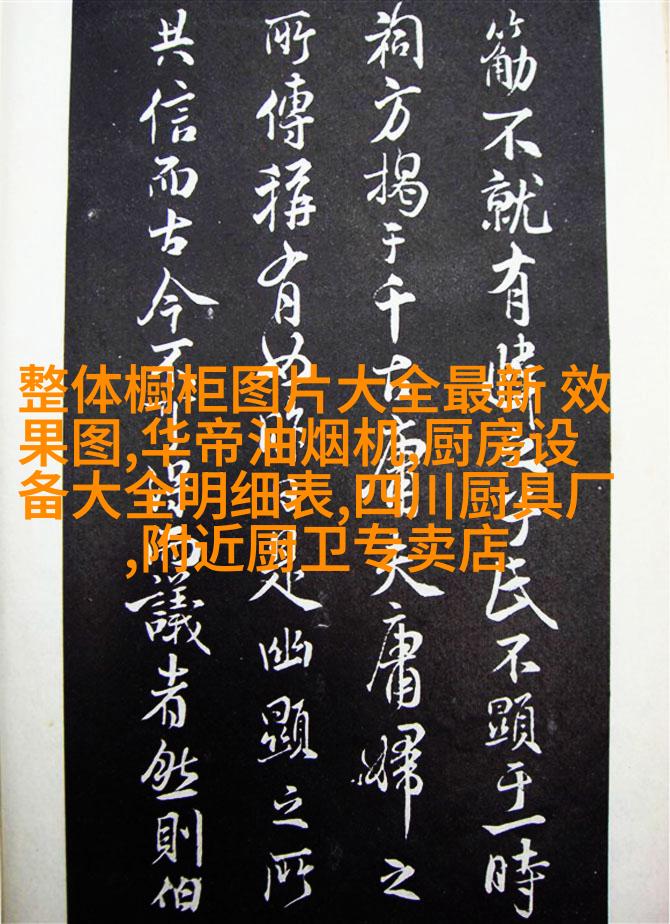 不就有氏不顯于一時
祠方揭于千古庸夫庸婦之
所傳稱有是幽顯之所
共信而古今不議者然則伯
整体橱柜图片大全最新 效
果图,华帝油烟机,厨房设
备大全明细表,四川厨具厂
,附近厨卫专卖店